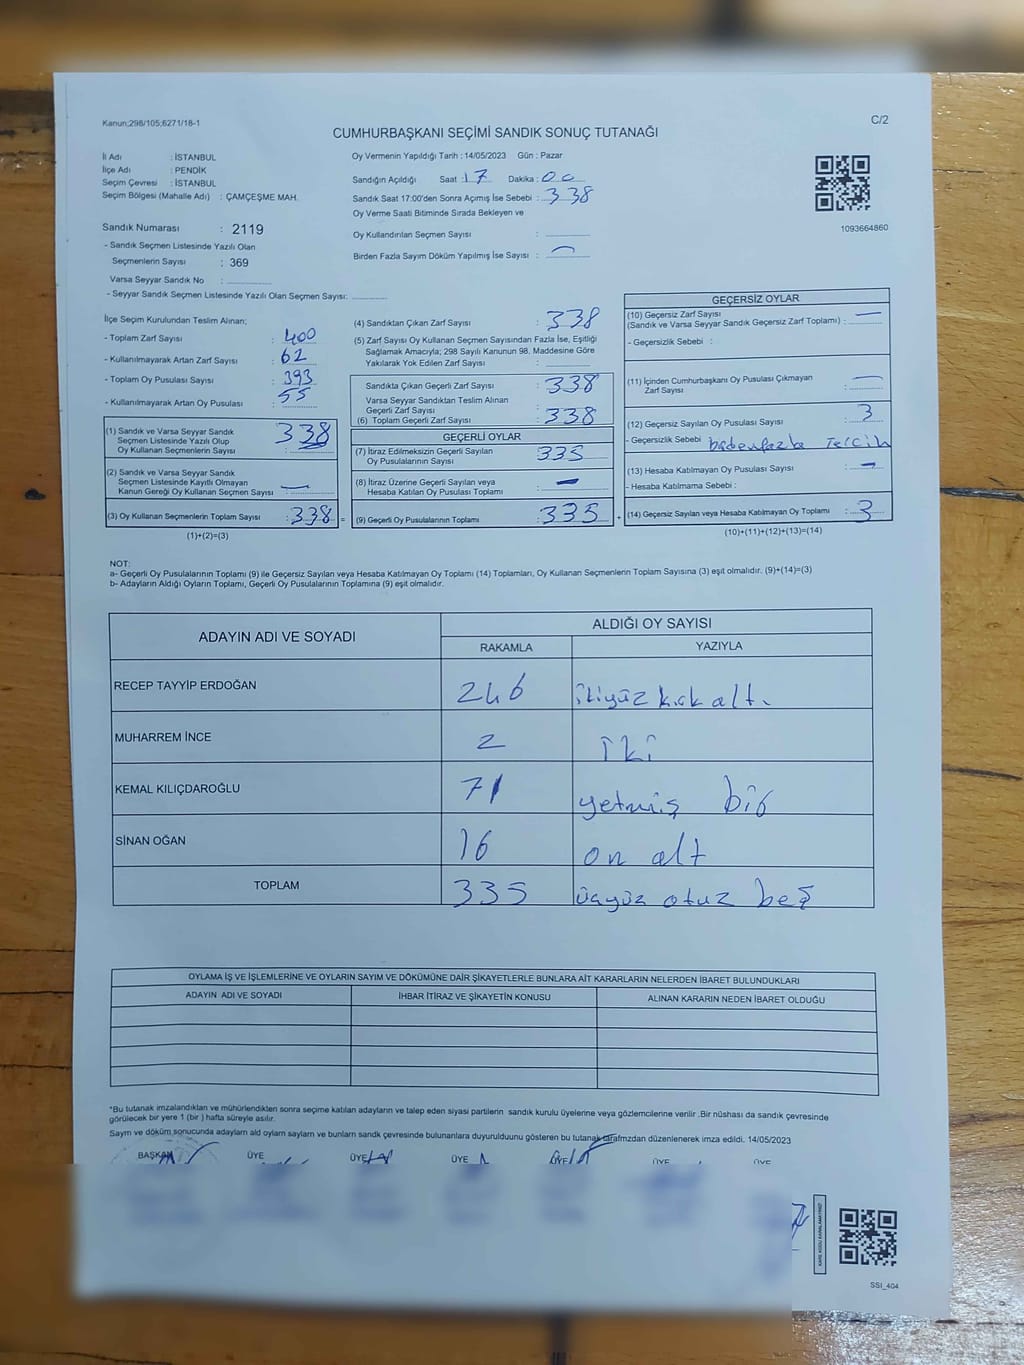 Kanun;298/105;6271/18-1
C/2
CUMHURBAŞKANI SEÇİMİ SANDIK SONUÇ TUTANAĞI
İl Adı : İSTANBUL
İlçe Adı : PENDİK
Seçim Çevresi : İSTANBUL
Seçim Bölgesi (Mahalle Adı) : ÇAMÇEŞME MAH.
Sandık Numarası : 2119
- Sandık Seçmen Listesinde Yazılı Olan
Seçmenlerin Sayısı : 369
Varsa Seyyar Sandık No :
- Seyyar Sandık Seçmen Listesinde Yazılı Olan Seçmen Sayısı:
Oy Vermenin Yapıldığı Tarih : 14/05/2023 Gün : Pazar
Sandığın Açıldığı Saat : 17 Dakika : 00
Sandık Saat 17:00'den Sonra Açımış İse Sebebi : 338
Oy Verme Saati Bitiminde Sırada Bekleyen ve
Oy Kullandırılan Seçmen Sayısı :
Birden Fazla Sayım Döküm Yapılmış İse Sayısı : —
1093664860
İlçe Seçim Kurulundan Teslim Alınan;
- Toplam Zarf Sayısı : 400
- Kullanılmayarak Artan Zarf Sayısı : 62
- Toplam Oy Pusulası Sayısı : 393
- Kullanılmayarak Artan Oy Pusulası : 55
(1) Sandık ve Varsa Seyyar Sandık
Seçmen Listesinde Yazılı Olup
Oy Kullanan Seçmenlerin Sayısı : 338
(2) Sandık ve Varsa Seyyar Sandık
Seçmen Listesinde Kayıtlı Olmayan
Kanun Gereği Oy Kullanan Seçmen Sayısı : —
(3) Oy Kullanan Seçmenlerin Toplam Sayısı : 338 =
(1)+(2)=(3)
(4) Sandıktan Çıkan Zarf Sayısı : 338
(5) Zarf Sayısı Oy Kullanan Seçmen Sayısından Fazla İse, Eşitliği
Sağlamak Amacıyla; 298 Sayılı Kanunun 98. Maddesine Göre
Yakılarak Yok Edilen Zarf Sayısı :
Sandıkta Çıkan Geçerli Zarf Sayısı : 338
Varsa Seyyar Sandıktan Teslim Alınan
Geçerli Zarf Sayısı :
(6) Toplam Geçerli Zarf Sayısı : 338
GEÇERLİ OYLAR
(7) İtiraz Edilmeksizin Geçerli Sayılan
Oy Pusulalarının Sayısı : 335
(8) İtiraz Üzerine Geçerli Sayılan veya
Hesaba Katılan Oy Pusulası Toplamı : —
(9) Geçerli Oy Pusulalarının Toplamı : 335 +
GEÇERSİZ OYLAR
(10) Geçersiz Zarf Sayısı
(Sandık ve Varsa Seyyar Sandık Geçersiz Zarf Toplamı) : —
- Geçersizlik Sebebi :
(11) İçinden Cumhurbaşkanı Oy Pusulası Çıkmayan
Zarf Sayısı : —
(12) Geçersiz Sayılan Oy Pusulası Sayısı : 3
- Geçersizlik Sebebi :
(13) Hesaba Katılmayan Oy Pusulası Sayısı : —
- Hesaba Katılmama Sebebi :
(14) Geçersiz Sayılan veya Hesaba Katılmayan Oy Toplamı : 3
(10)+(11)+(12)+(13)=(14)
NOT:
a- Geçerli Oy Pusulalarının Toplamı (9) ile Geçersiz Sayılan veya Hesaba Katılmayan Oy Toplamı (14) Toplamları, Oy Kullanan Seçmenlerin Toplam Sayısına (3) eşit olmalıdır. (9)+(14)=(3)
b- Adayların Aldığı Oyların Toplamı, Geçerli Oy Pusulalarının Toplamına (9) eşit olmalıdır.
ADAYIN ADI VE SOYADI ALDIĞI OY SAYISI
RAKAMLA YAZIYLA
RECEP TAYYİP ERDOĞAN 246 ikiyüz kırk altı
MUHARREM İNCE 2 İki
KEMAL KILIÇDAROĞLU 71 yetmiş bir
SİNAN OĞAN 16 on altı
TOPLAM 335 üçyüz otuz beş
OYLAMA İŞ VE İŞLEMLERİNE VE OYLARIN SAYIM VE DÖKÜMÜNE DAİR ŞİKAYETLERLE BUNLARA AİT KARARLARIN NELERDEN İBARET BULUNDUKLARI
ADAYIN ADI VE SOYADI İHBAR İTİRAZ VE ŞİKAYETİN KONUSU ALINAN KARARIN NEDEN İBARET OLDUĞU
*Bu tutanak imzalandıktan ve mühürlendikten sonra seçime katılan adayların ve talep eden siyasi partilerin sandık kurulu üyelerine veya gözlemcilerine verilir .Bir nüshası da sandık çevresinde
görülecek bir yere 1 (bir ) hafta süreyle asılır.
Sayım ve döküm sonucunda adayların ald oyların sayların ve bunların sandık çevresinde bulunanlara duyurulduunu gösteren bu tutanak tarafmzdan düzenlenerek imza edildi. 14/05/2023
BAŞKAN ÜYE ÜYE ÜYE ÜYE ÜYE ÜYE
SSI_404